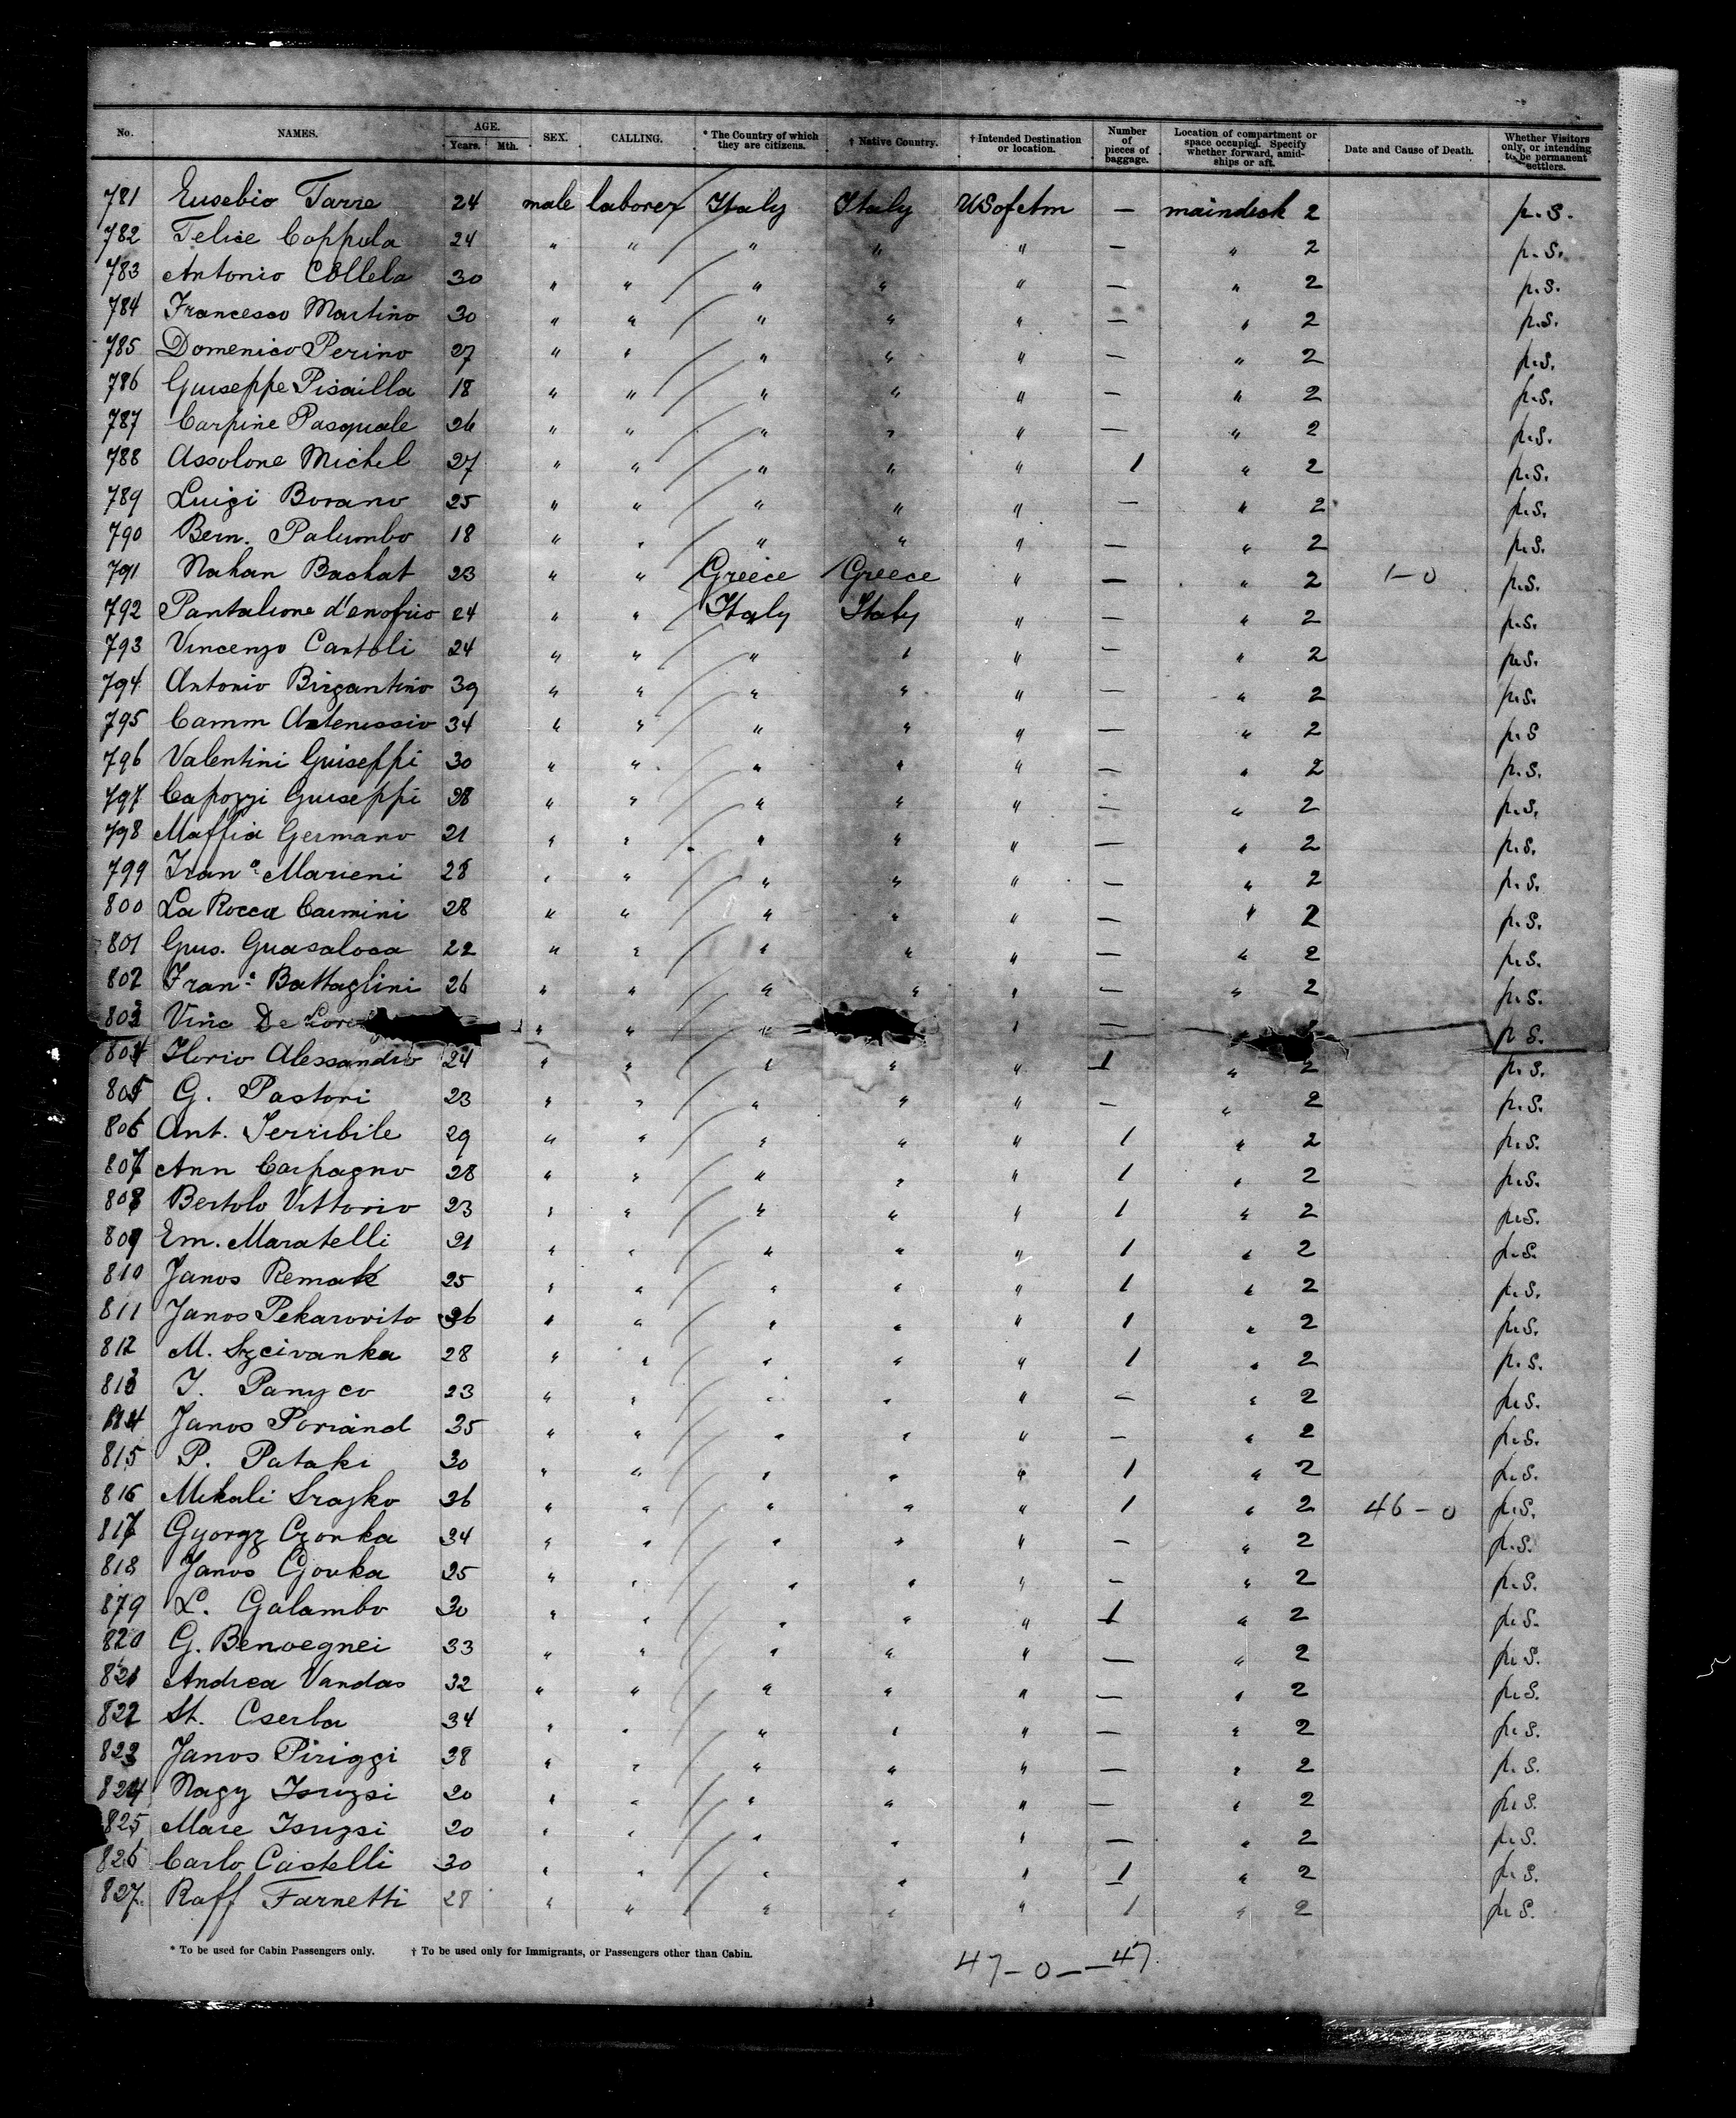 No. NAMES. AGE. SEX. CALLING. * The Country of which they are citizens. † Native Country. † Intended Destination or location. Number of pieces of baggage. Location of compartment or space occupied. Specify whether forward, amidships or aft. Date and Cause of Death. Whether Visitors only, or intending to be permanent settlers.
Years. Mth.
781 Eusebio Tarre 24 male laborer Italy Italy US of Am — maindeck 2 p.s.
782 Felice Coppola 24 " " " " " — " 2 p.s.
783 Antonio Collela 30 " " " " " — " 2 p.s.
784 Francesco Martino 30 " " " " " — " 2 p.s.
785 Domenico Perino 27 " " " " " — " 2 p.s.
786 Guiseppe Pisailla 18 " " " " " — " 2 p.s.
787 Carpine Pasquale 26 " " " " " — " 2 p.s.
788 Assolone Michel 27 " " " " " 1 " 2 p.s.
789 Luigi Borano 25 " " " " " — " 2 p.s.
790 Bern. Palumbo 18 " " " " " — " 2 p.s.
791 Nahan Bachat 23 " " Greece Greece " — " 2 1-0 p.s.
792 Pantalione d'enofrio 24 " " Italy Italy " — " 2 p.s.
793 Vincenzo Cantoli 24 " " " " " — " 2 p.s.
794 Antonio Birgantino 39 " " " " " — " 2 p.s.
795 Camm 34 " " " " " — " 2 p.s
796 Valentini Guiseppi 30 " " " " " — " 2 p.s.
797 Capozzi Guiseppi 28 " " " " " — " 2 p.s.
798 Maffia Germano 21 " " " " " — " 2 p.s.
799 Franº Marieni 28 " " " " " — " 2 p.s.
800 La Rocca Carmini 28 " " " " " — " 2 p.s.
801 Gus. Guasaloca 22 " " " " " — " 2 p.s.
802 Franº Battaglini 26 " " " " " — " 2 p.s.
803 Vinc De " " " " — p.s.
804 Ilorio Alessandro 24 " " " " " 1 " 2 p.s.
805 G. Pastori 23 " " " " " — " 2 p.s.
806 Ant. Terribile 29 " " " " " 1 " 2 p.s.
807 Ann Carpagno 28 " " " " " 1 " 2 p.s.
808 Bertolo Vittorio 23 " " " " " 1 " 2 p.s.
809 Em. Maratelli 21 " " " " " 1 " 2 p.s.
810 Janos Remak 25 " " " " " 1 " 2 p.s.
811 Janos Pekarovito 26 " " " " " 1 " 2 p.s.
812 M. Szcivanka 28 " " " " " 1 " 2 p.s.
813 I. Panyco 23 " " " " " — " 2 p.s.
814 Janos Poriand 35 " " " " " — " 2 p.s.
815 P. Pataki 30 " " " " " 1 " 2 p.s.
816 Mihali Srajko 36 " " " " " 1 " 2 46-0 p.s.
817 Gyorgz Czonka 34 " " " " " — " 2 p.s.
818 Janos Czonka 25 " " " " " — " 2 p.s.
819 L. Galambo 30 " " " " " 1 " 2 p.s.
820 G. Benvegnei 33 " " " " " — " 2 p.s.
821 Andrea Vandas 32 " " " " " — " 2 p.s.
822 St. Cserba 34 " " " " " — " 2 p.s.
823 Janos Piriggi 38 " " " " " — " 2 p.s.
824 Nagy Isuzsi 20 " " " " " — " 2 p.s.
825 Mare Isuzsi 20 " " " " " — " 2 p.s.
826 Carlo Castelli 30 " " " " " 1 " 2 p.s.
827 Raff Farnetti 28 " " " " " 1 " 2 p.s.
* To be used for Cabin Passengers only. † To be used only for Immigrants, or Passengers other than Cabin.
47-0--47.